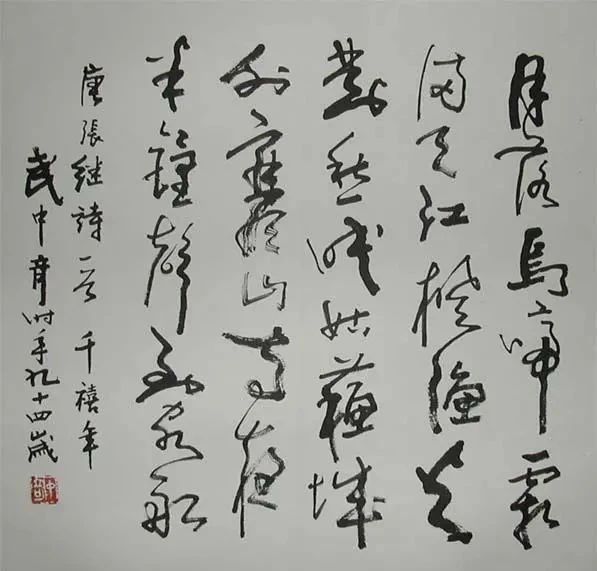 月落烏啼霜
满天江楓漁火
對愁眠姑蘇城
外寒山寺夜
半鐘聲到客船
唐張继詩一首 千禧年
武中奇时年九十四歲
中奇